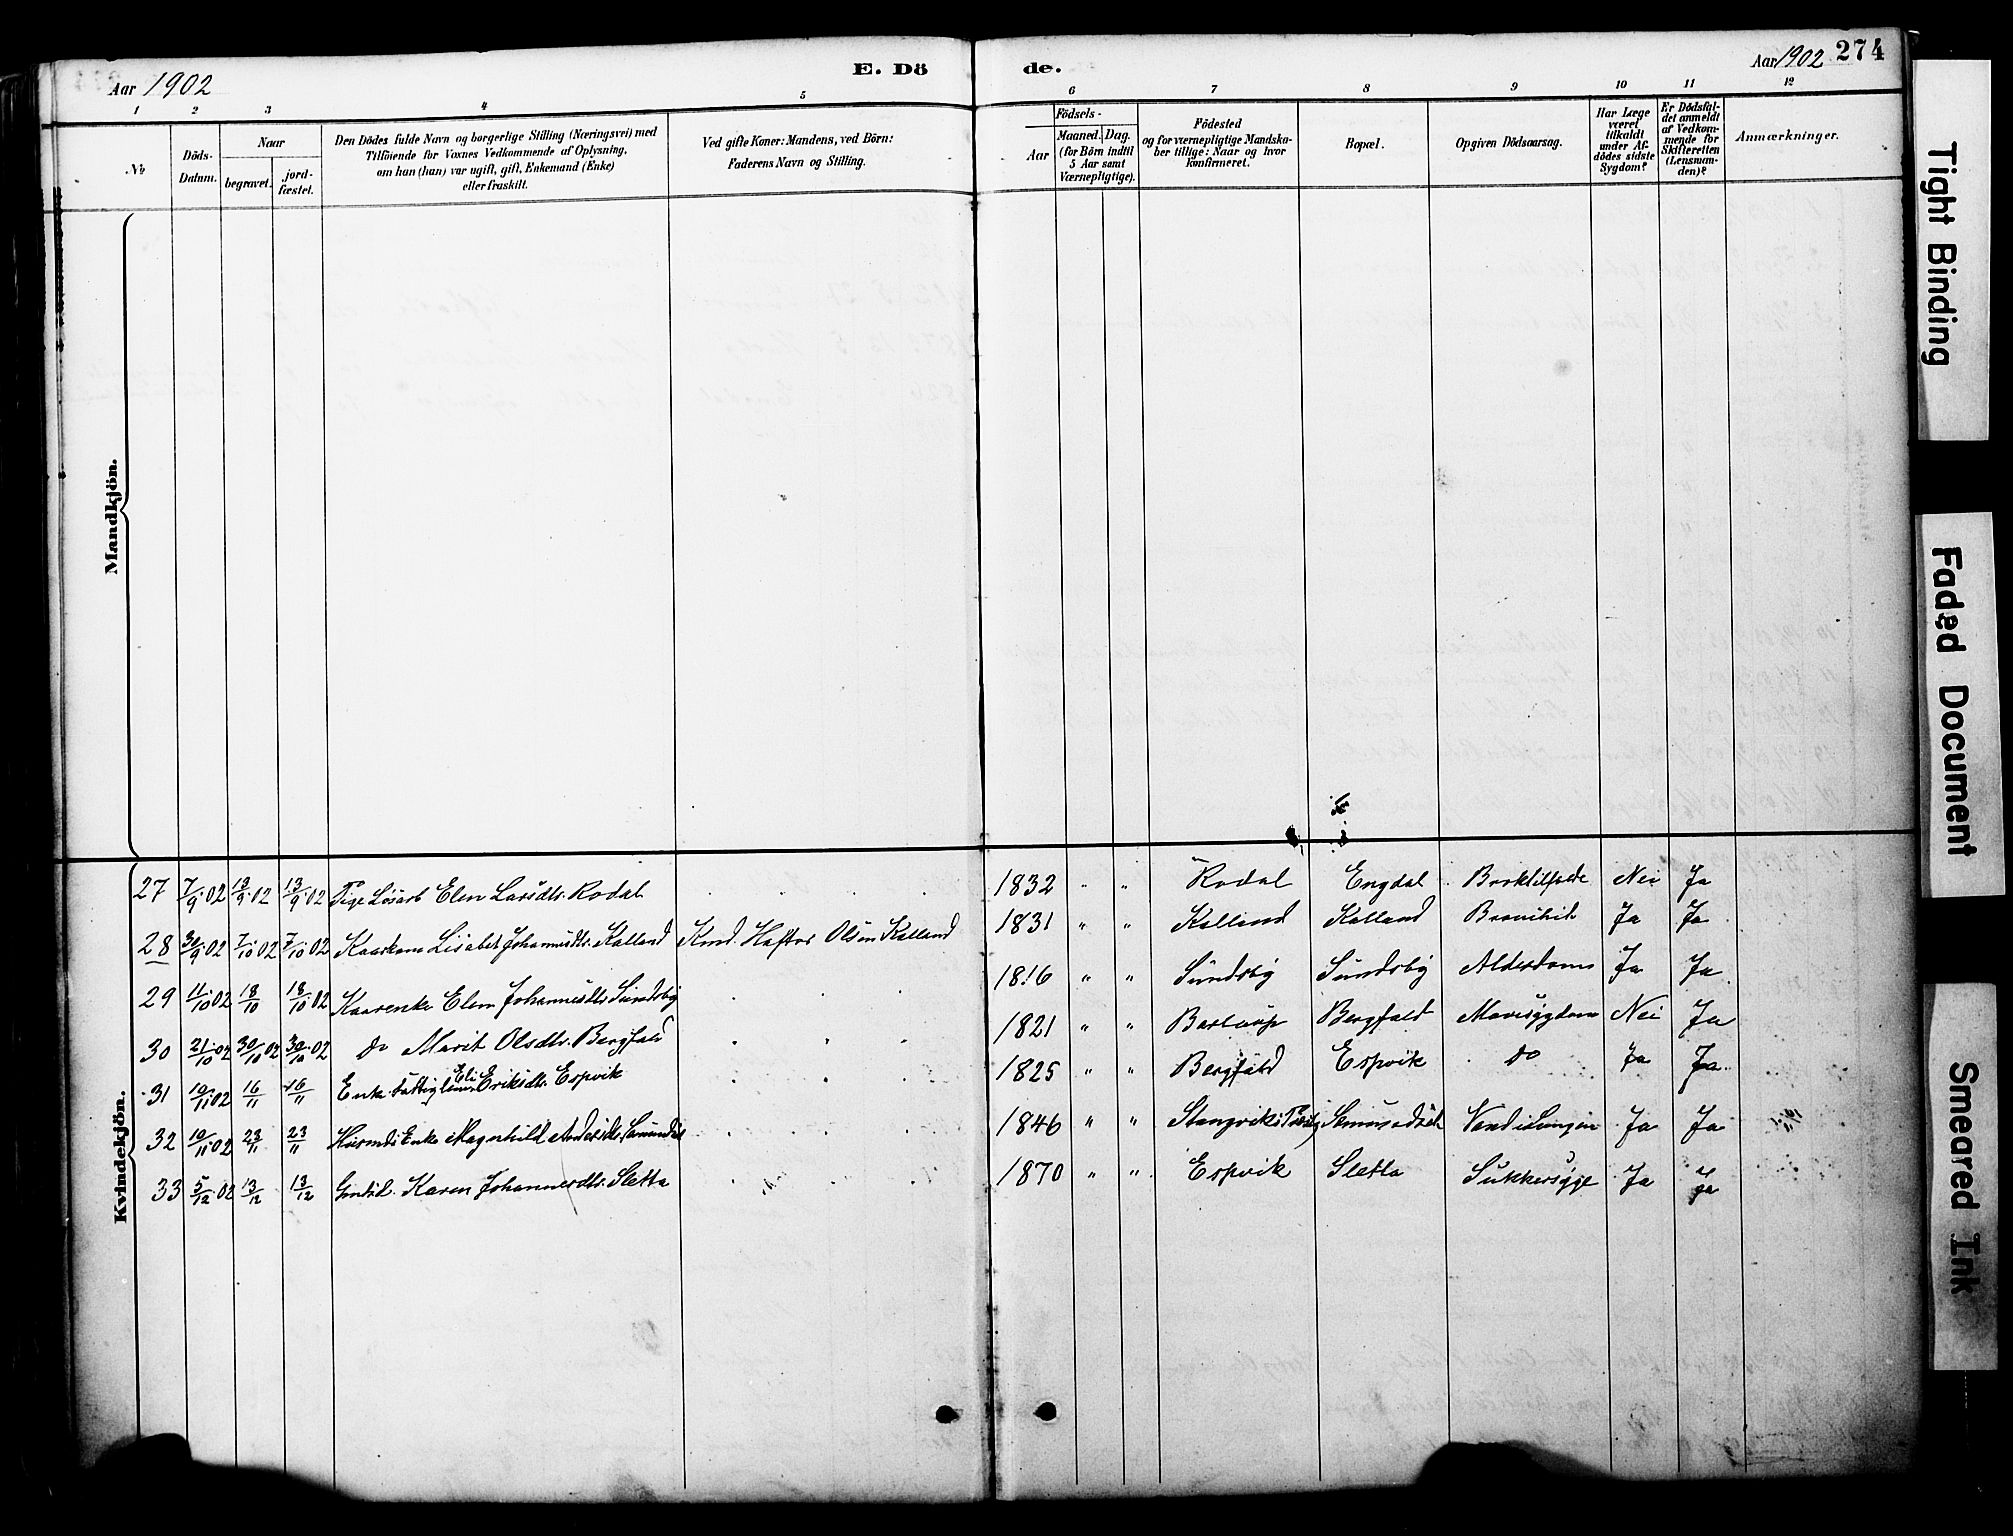 Aar 1902
E. Dö
de.
Aar 1902
274
1 2 3 4 5 6 7 8 9 10 11 12
No
Döds-
Datum.
Naar
begravet.
jord-
fæstet.
Den Dödes fulde Navn og borgerlige Stilling (Næringsvei) med
Tilföiende for Voxnes Vedkommende af Oplysning,
om han (hun) var ugift, gift, Enkemand (Enke)
eller fraskilt.
Ved gifte Koner: Mandens, ved Börn:
Faderens Navn og Stilling.
Födsels-
Aar
Maaned. Dag.
(for Börn indtil
5 Aar samt
Værnepligtige).
Födested
og for værnepligtige Mandska-
ber tillige: Naar og hvor
konfirmeret.
Bopæl.
Opgiven Dödsaarsag.
Har Læge
været
tilkaldt
under Af-
dödes sidste
Sygdom?
Er Dödsfal-
det anmeldt
af Vedkom-
mende for
Skifteretten
(Lensman-
den)?
Anmærkninger.
Mandkjön.
Kvindekjön.
27 7/9 02 13/9 02 13/9 02 Pige Losarb Elen Larsdtr. Rodal 1832 " " Rodal Engdal Nei Ja
28 30/9 02 7/10 02 7/10 02 Kaarkone Lisabet Johannesdtr. Kalland Kmd. Haftor Olsen Kalland 1831 " " Kalland Kalland Ja Ja
29 11/10 02 18/10 18/10 02 Kaarenke Elen Johannesdtr. Sundsby 1816 " " Sundsby Sundsby Alderdoms Ja Ja
30 21/10 02 30/10 02 30/10 02 do Marit Olsdtr. Bergfald 1821 " " Bergfald Mavesygdom Nei Ja
31 10/11 02 16/11 16/11 Enke Fattiglem Eli Eriksdtr. Espvik 1825 " " Bergfald Espvik do Ja Ja
32 10/11 02 23/11 23/11 Husmds Enke Magnhild 1846 " " Stangvik Ja Ja
33 5/12 02 13/12 13/12 Karen Johannesdtr. Sletta 1870 " " Espvik Sletta Sukkersyge Ja Ja
Tight Binding
Faded Document
Smeared Ink